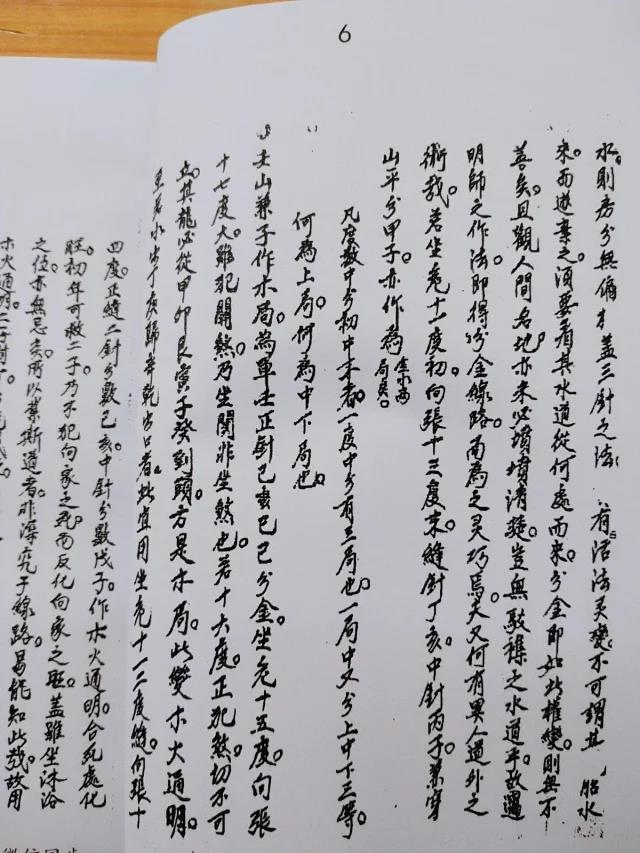 6
水。則房分無偏才蓋三針之法 有活法灵變不可謂其 胎水
來而遊棄之。須要看其水道從何處而來。分金即如此權變。則無不
善矣。且觀人間名地亦未必墳墳清 豈無駁雜之水道乎。故遇
明師之作法即得分金線路。而為之灵巧焉。夫又何有異人道外之
術哉。若坐危十一度初。向張十三度末縫針丁亥中針丙子兼穿
山平分甲子。亦作為 金水局 局矣。
凡度數中分初中末者。一度中分有三局也。一局中又分上中下三等。
何為上局。何為中下局也。
壬山兼子作木局。為單壬正針己亥巳巳分金。坐危十五度。向張
十七度大。雖犯關煞。乃坐関非坐煞也。若十六度。正犯煞。切不可
立。其龍必從甲卯艮寅子癸到頭方是木局。此變木火通明。
至若水出丁庚歸辛乾出口者。此宜用坐危十一二度縫。向張十
四度正縫二針分數己亥。中針分數戊子。作木火通明。合死處化
旺。初年可救二子。乃不犯向家之死。而反化向家之旺。蓋雖坐沐浴
之位。亦無忌矣。所以業斯道者。非深究于線路。曷能知此哉。故用
木火通明。二子